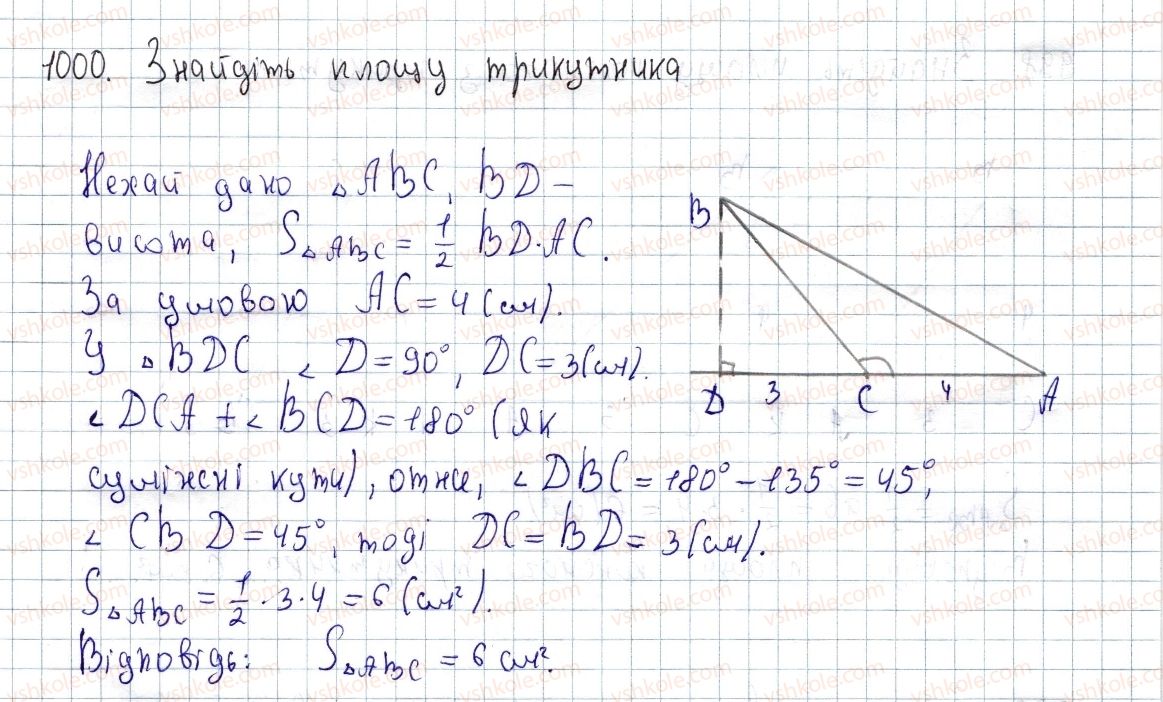 1000. Знайдіть площу трикутника
Нехай дано △ABC, BD –
висота, S△ABC = 1/2 BD·AC.
За умовою AC = 4 (см).
У △BDC ∠D = 90°, DC = 3 (см).
∠DCA + ∠BCD = 180° (як
суміжні кути), отже, ∠DBC = 180° – 135° = 45°,
∠CBD = 45°, тоді DC = BD = 3 (см).
S△ABC = 1/2 · 3 · 4 = 6 (см²).
Відповідь: S△ABC = 6 см².
B
D 3 C 4 A
vshkole.com